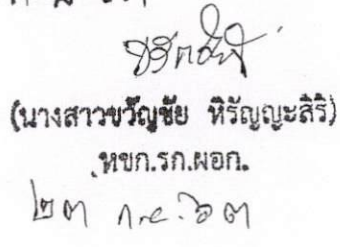 (นางสาวขวัญชัย หิรัญญะสิริ)
หขก.รก.ผอก.
๒๓ ก.ย. ๖๓